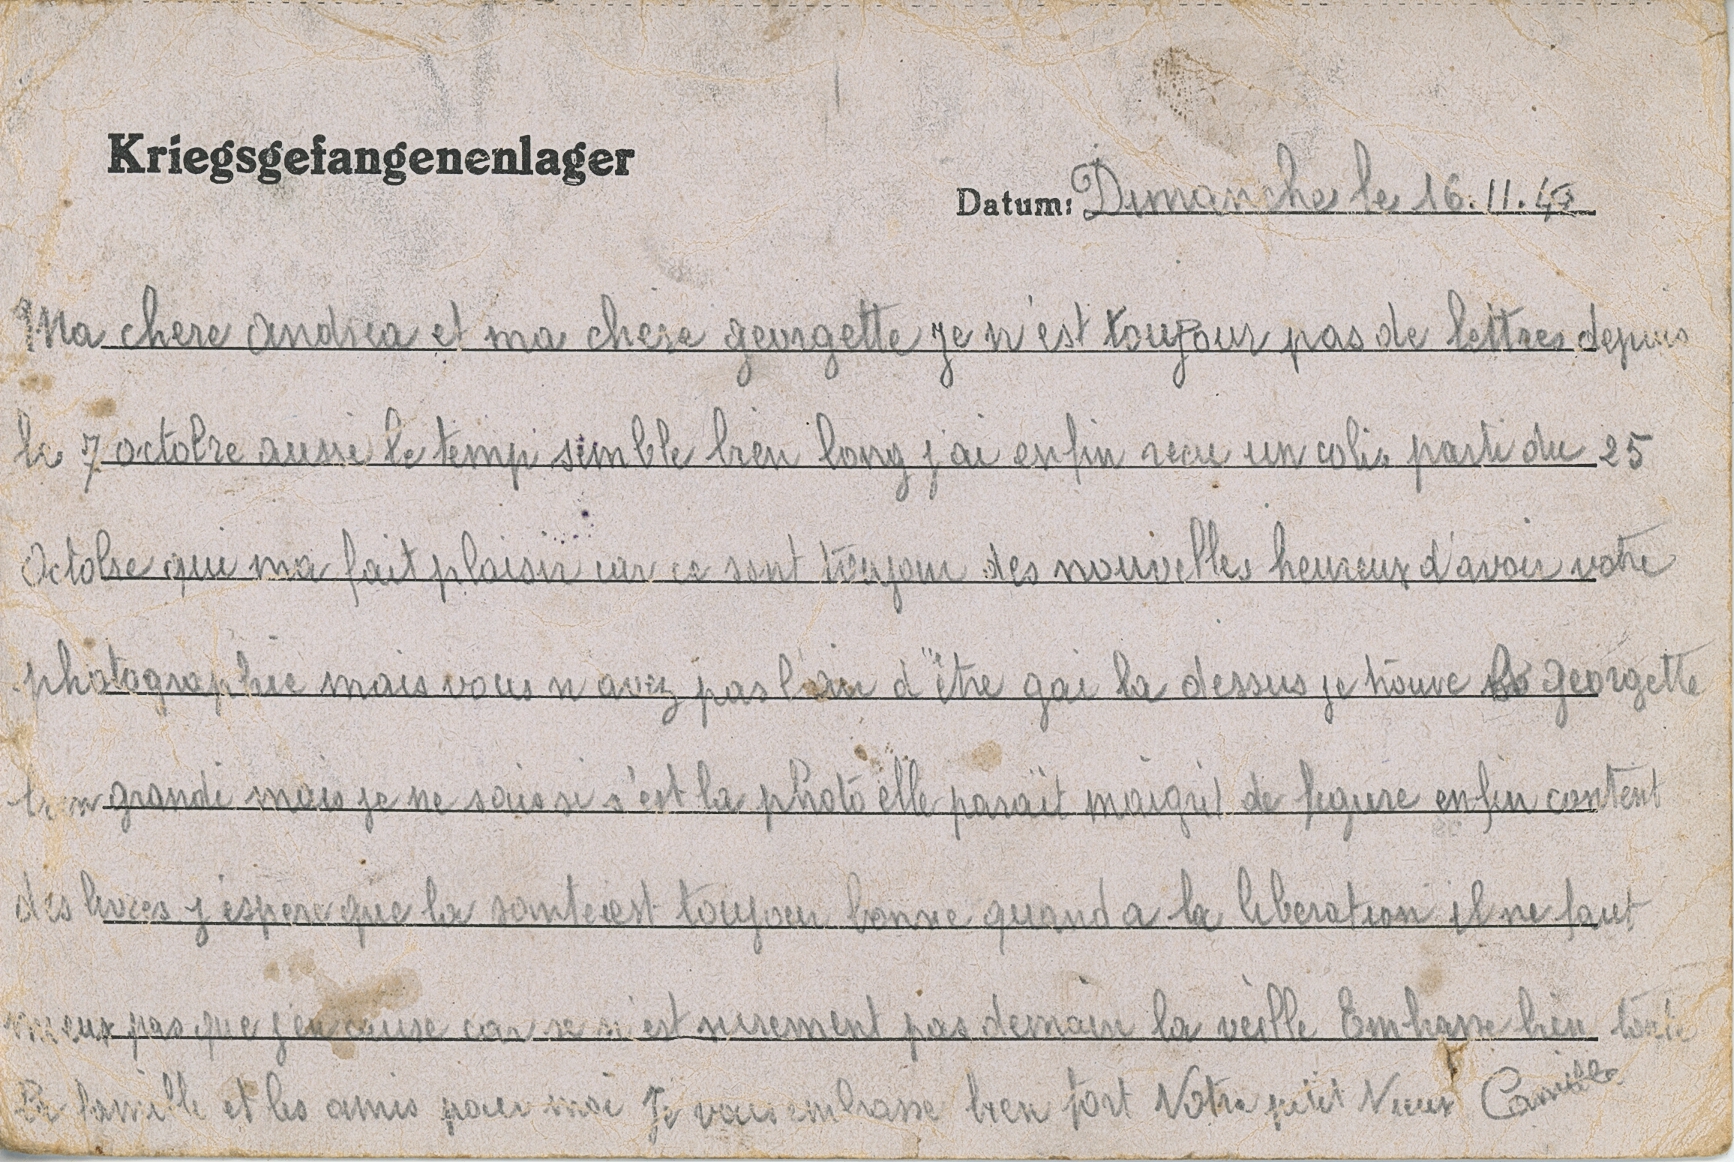 Kriegsgefangenenlager
Datum: Dimanche le 16.11.43
Ma chere Andrea et ma chere georgette je n'est toujour pas de lettres depuis
le 7 octobre aussi le temp simble bien long j ai enfin recu un colis parti du 25
Octobre qui ma fait plaisir car ce sont toujour des nouvelles heureux d'avoir votre
photographie mais vous n avez pas l'air d'être gai la dessus je trouve georgette
bien grandi mais je ne sais si s'est la photo elle parait maigrit de figure enfin content
des j espere que la sante est toujour bonne quand a la liberation il ne faut
mieux pas que j'en cause car se n'est surement pas demain la veille Embrasse bien toute
la famille et les amis pour moi Je vous embrasse bien fort Votre petit Vieux Camille